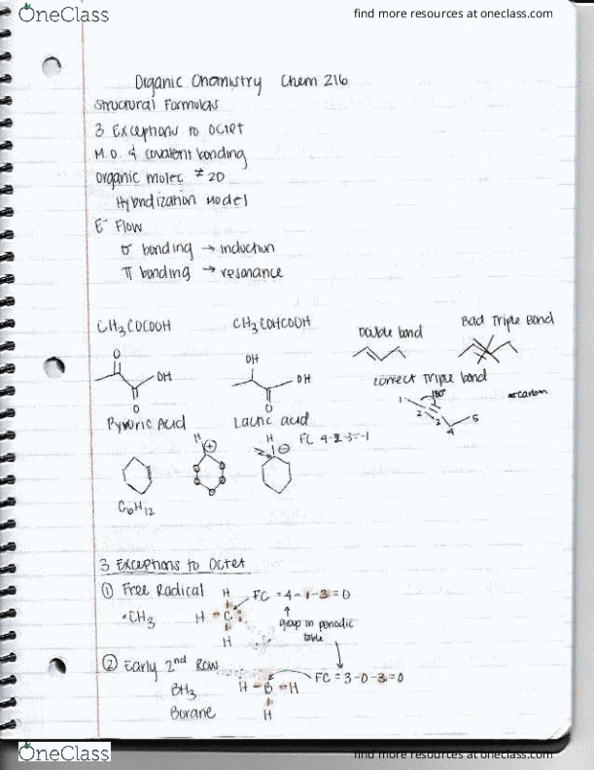 OneClass
find more resources at oneclass.com
Organic Chemistry Chem 216
Structural Formulas
3 Exceptions to Octet
M.O. & covalent bonding
Organic molec ≠ 2D
Hybridization Model
E⁻ Flow
σ bonding → induction
π bonding → resonance
CH₃COCOOH
CH₃COHCOOH
Double bond
Bad Triple Bond
O
OH
O
OH
OH
O
correct Triple bond
180°
1
2
3
4
5
carbon
Pyruvic Acid
Lactic acid
H
+
H
⊖
FC 4-2-3=-1
C₆H₁₂
3 Exceptions to Octet
① Free Radical
•CH₃
H
H - C
H
FC = 4-1-3=0
↑
group in periodic
table
② Early 2nd Row
BH₃
Borane
H - B - H
H
FC = 3-0-3=0
OneClass
find more resources at oneclass.com